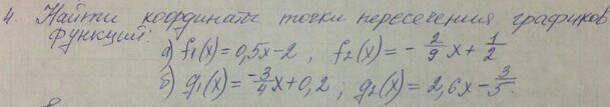 4. Найти координаты точки пересечения графиков
функций:
а) f₁(x) = 0,5x - 2 ; f₂(x) = - 2/9 x + 1/2
б) g₁(x) = -3/4 x + 0,2 ; g₂(x) = 2,6x - 3/5.